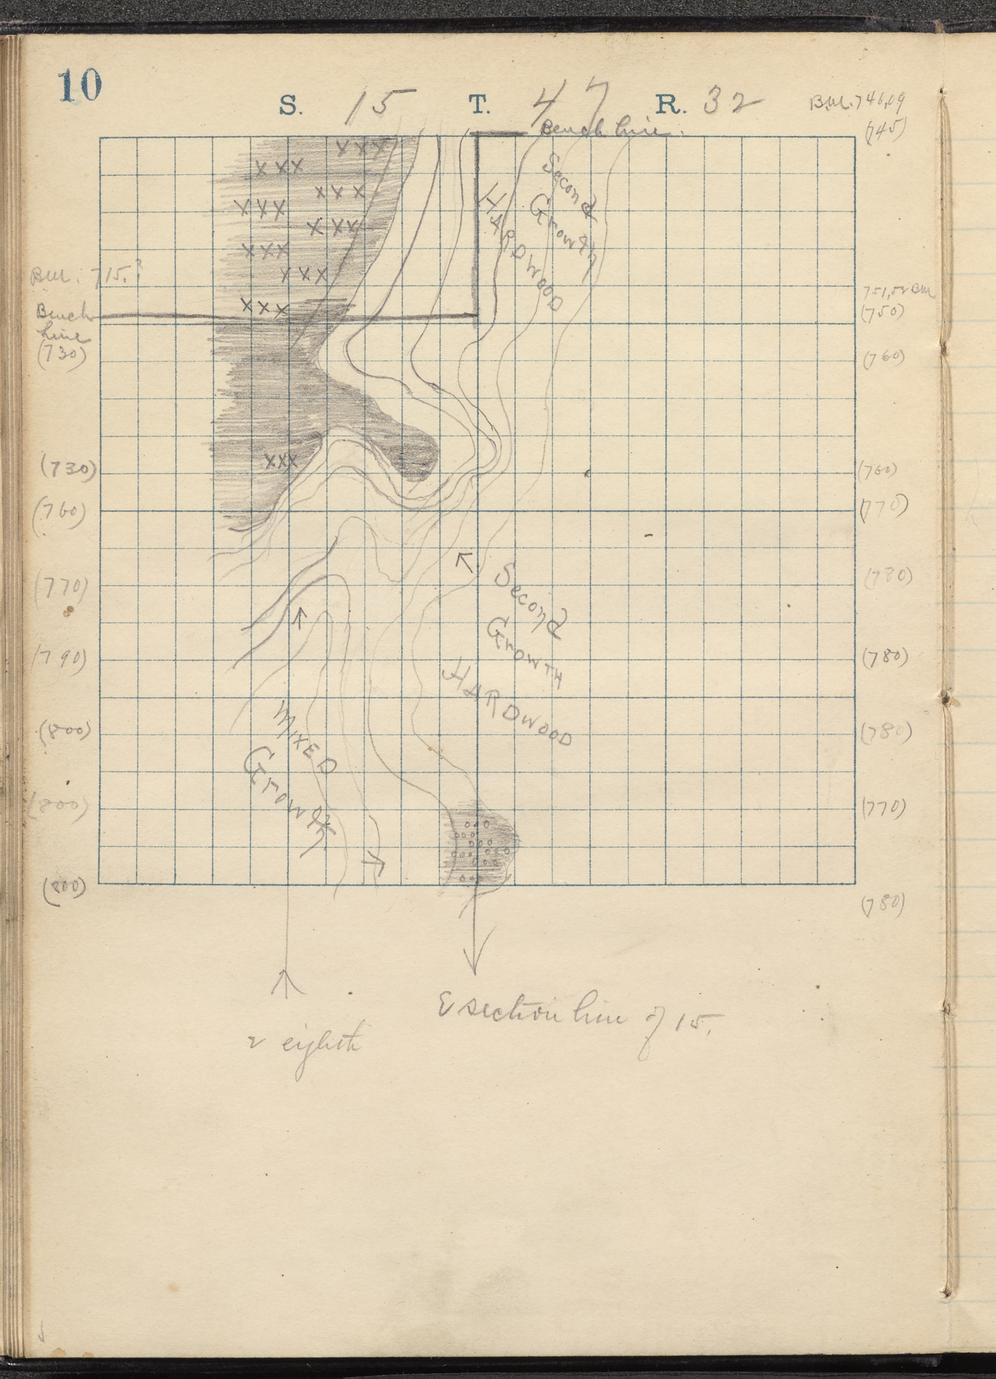 10
S. 15 T. 47 R. 32
B.M. 746.09
(745)
Bench line.
XXX
XXX
XXX
XXX
XXX
XXX
XXX
XXX
Second
Growth
HARDWOOD
B.M. 715.?
Bench
line
(730)
B.M.
(750)
(760)
XXX
(730)
(760)
(760)
(770)
(770)
(780)
Second
Growth
HARDWOOD
(790)
(780)
(800)
(780)
MIXED
Growth
(800)
(770)
(800)
(780)
E section line of 15.
eighth